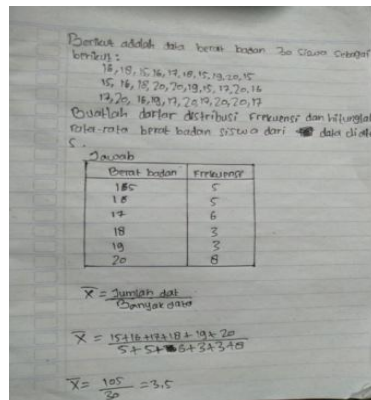 Berikut adalah data berat badan 30 siswa sebagai
berikut :
16, 18, 15, 16, 17, 18, 15, 19, 20, 15
15, 16, 18, 20, 20, 19, 15, 17, 20, 16
17, 20, 16, 19, 17, 20, 17, 20, 20, 17
Buatlah daftar distribusi frekuensi dan hitunglah
rata-rata berat badan siswa dari data diatas
Jawab
Berat badan Frekuensi
15 5
16 5
17 6
18 3
19 3
20 8
x̄ = Jumlah dat
Banyak data
x̄ = 15+16+17+18+19+20
5+5+6+3+3+8
x̄ = 105
30
= 3.5